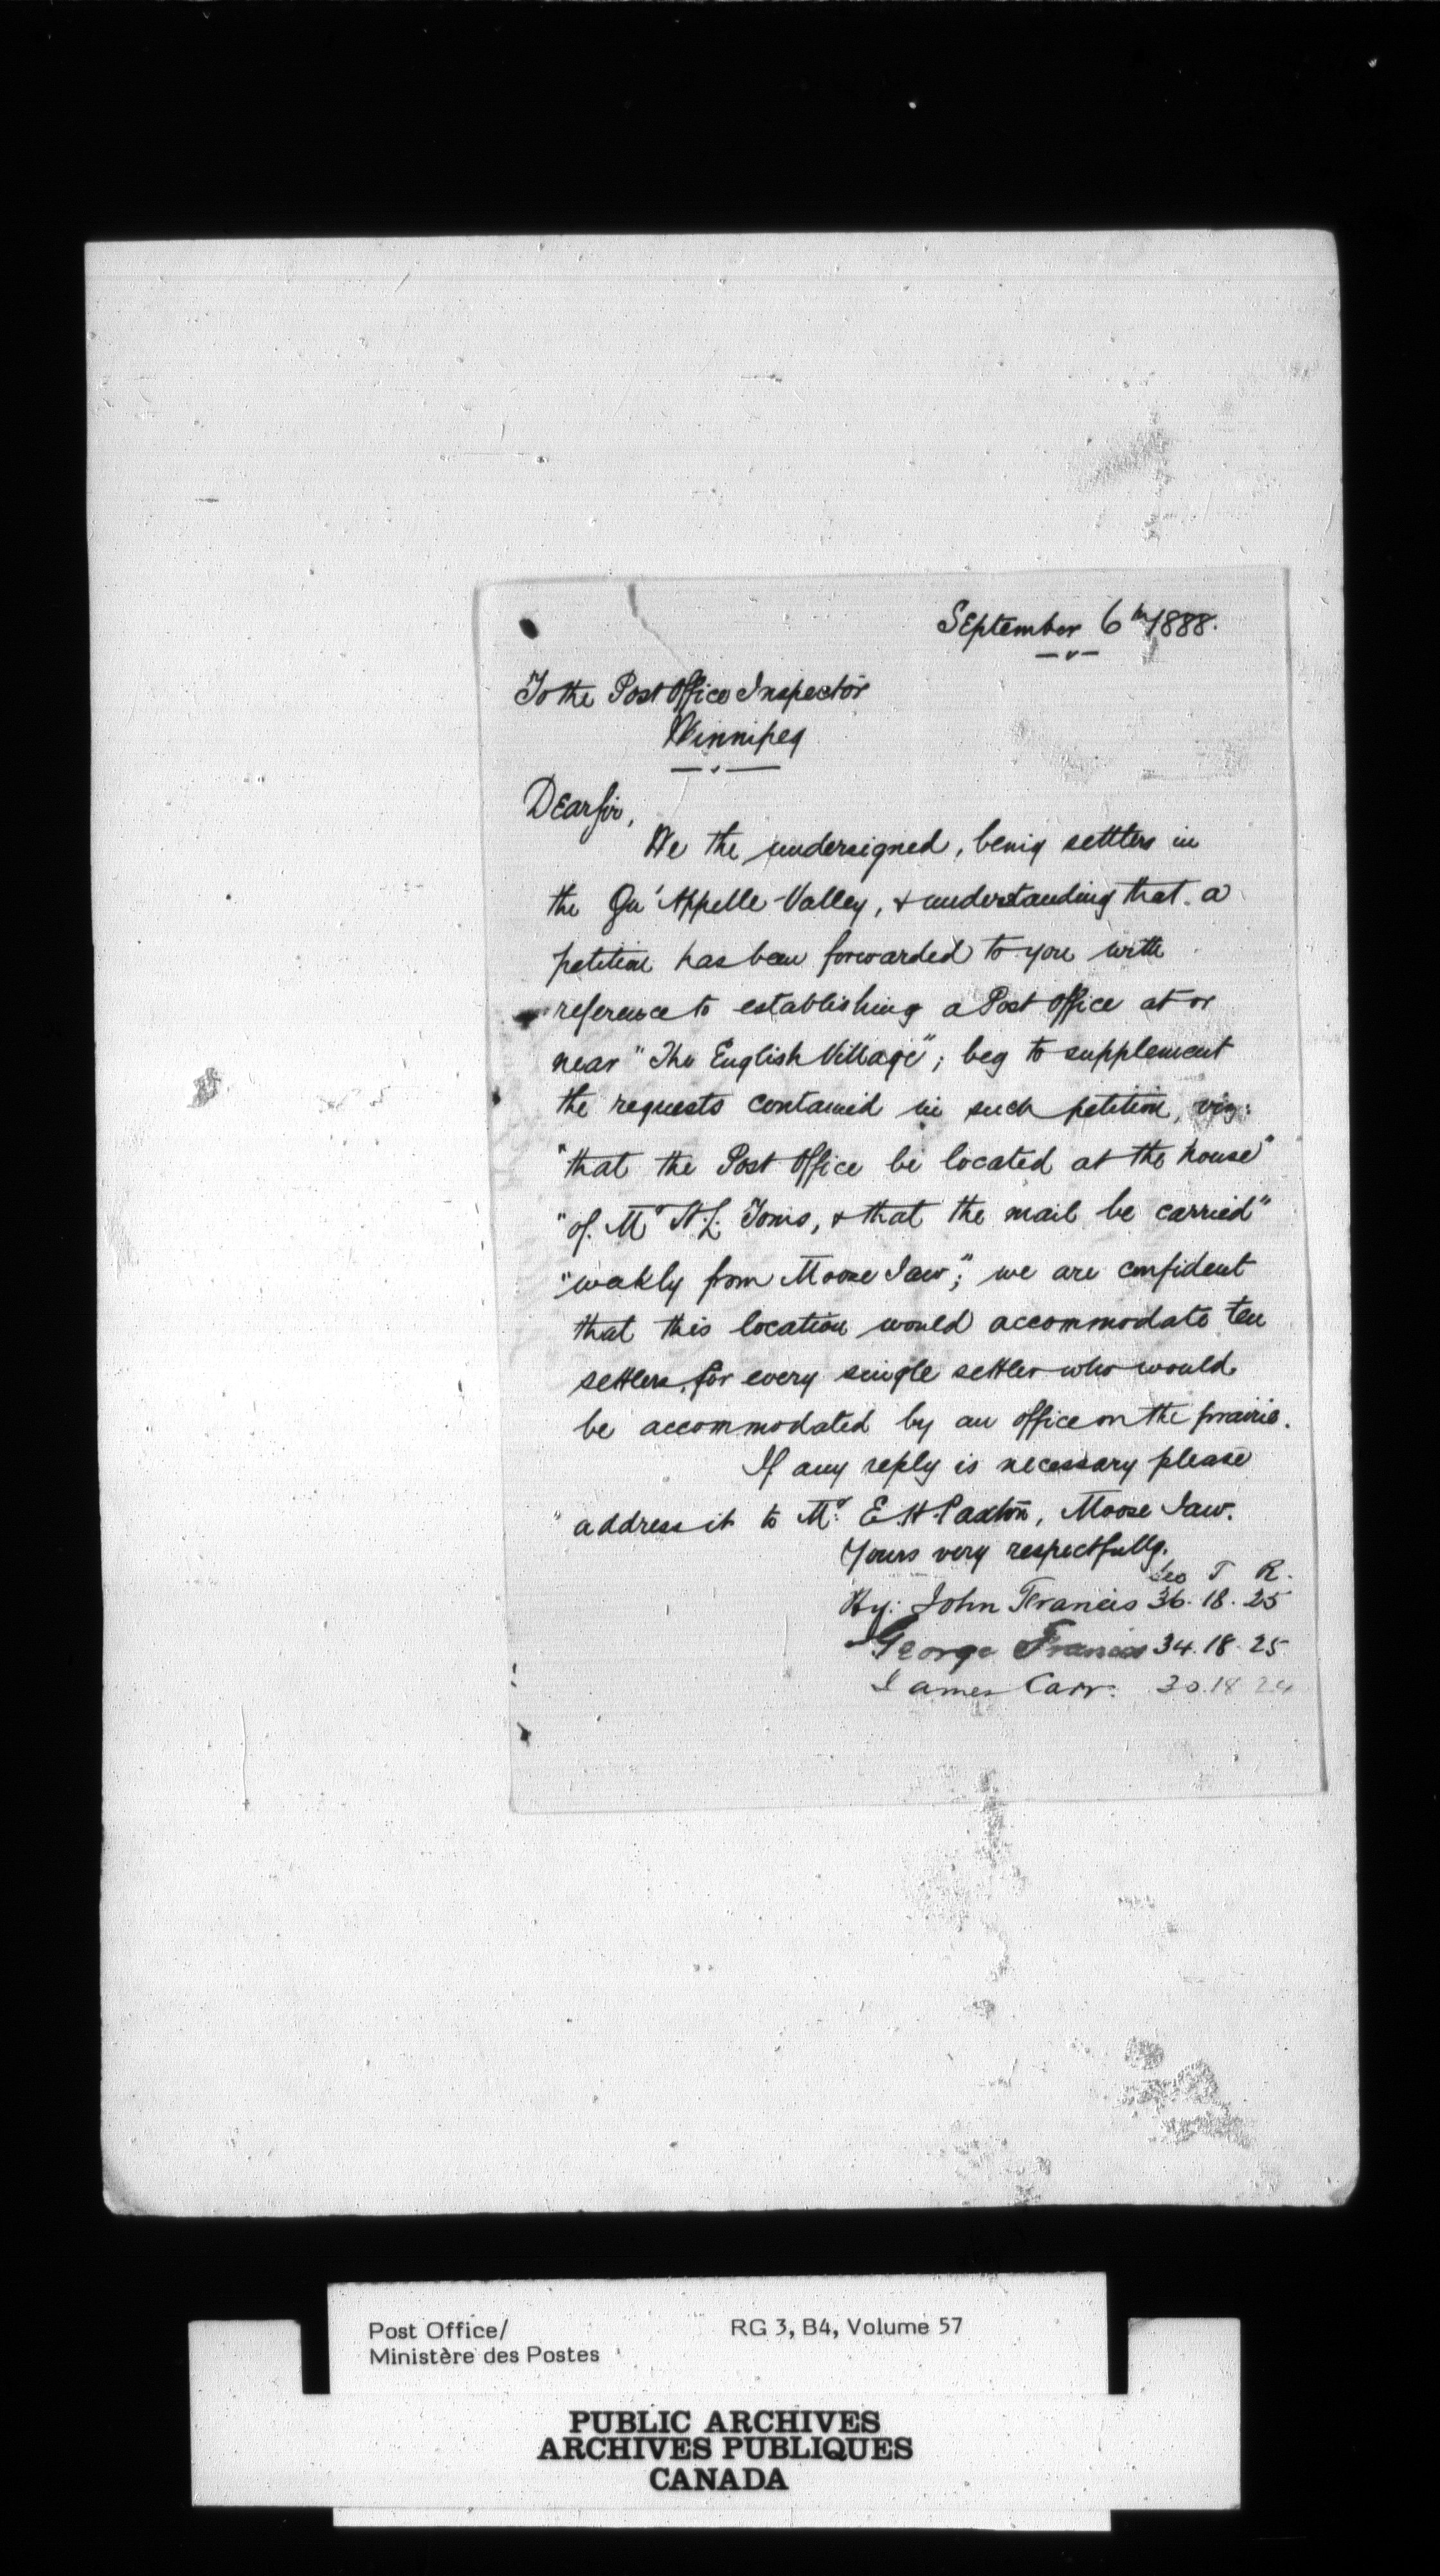 September 6th/1888.
To the Post Office Inspector
Winnipeg
Dear Sir,
We the undersigned, being settlers in
the Qu'Appelle Valley, & understanding that a
petition has been forwarded to you with
reference to establishing a Post Office at or
near "The English Village"; beg to supplement
the requests contained in such petition, viz:
"that the Post Office be located at the house"
"of Mr
& that the mail be carried"
"weakly from Moose Jaw"; we are confident
that this location would accommodate ten
settlers, for every single settler who would
be accommodated by an office on the prairie.
If any reply is necessary please
address it to Mr. E. H. Paxton, Moose Jaw.
Yours very respectfully.
Sec T R.
Hy: John Francis 36. 18. 25
George Francis 34. 18. 25
James Carr. 30. 18 24
Post Office/ RG 3, B4, Volume 57
Ministère des Postes
PUBLIC ARCHIVES
ARCHIVES PUBLIQUES
CANADA